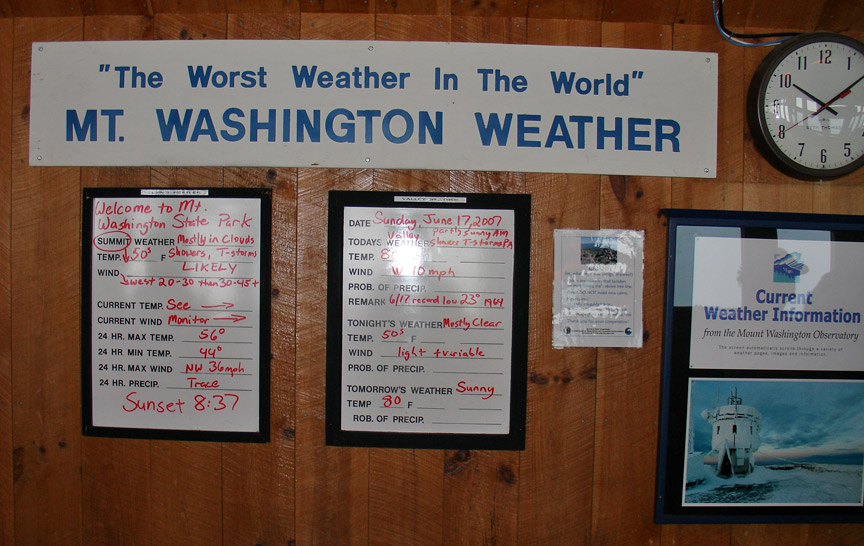 "The Worst Weather In The World"
MT. WASHINGTON WEATHER
Welcome to Mt.
Washington State Park
SUMMIT WEATHER Mostly in Clouds
TEMP. ↓50s F Showers, T-storms
WIND LIKELY
west 20-30 then 30-45+
CURRENT TEMP. See →
CURRENT WIND Monitor →
24 HR. MAX TEMP. 56°
24 HR MIN TEMP. 44°
24 HR. MAX WIND NW 36mph
24 HR. PRECIP. Trace
Sunset 8:37
VALLEY WEATHER
DATE Sunday, June 17, 2007
Valley partly sunny AM
TODAYS WEATHER showers T-storms PM
TEMP.
WIND W 10 mph
PROB. OF PRECIP.
REMARK 6/17 record low 23° 1941
TONIGHT'S WEATHER Mostly Clear
TEMP. 50s F
WIND light + variable
PROB. OF PRECIP.
TOMORROW'S WEATHER Sunny
TEMP 80 F
ROB. OF PRECIP.
12
1
10
9
8
7
6
5
Current
Weather Information
from the Mount Washington Observatory
The screen automatically scrolls through a variety of
weather pages, images and information.